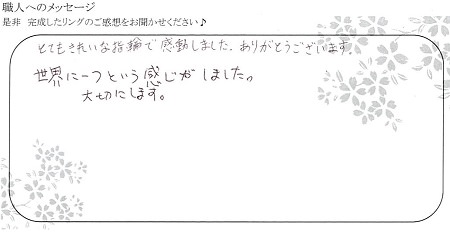 職人へのメッセージ
是非 完成したリングのご感想をお聞かせください♪
とてもきれいな指輪で感動しました。ありがとうございます。
世界に一つという感じがしました。
大切にします。